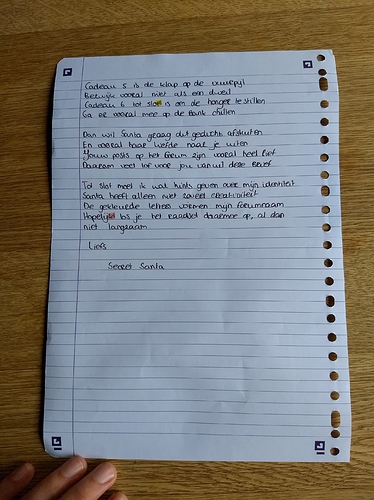 Cadeau 5 is de klap op de vuurpijl
Bezwijk vooral niet als een dweil
Cadeau 6 tot slot is om de honger te stillen
Ga er vooral mee op de bank chillen
Dan wil Santa graag dit gedicht afsluiten
En vooral haar liefde naar je uiten
Jouw posts op het forum zijn vooral heel lief
Daarom veel lof voor jou vanuit deze brief
Tot slot moet ik wat hints geven over mijn identiteit
Santa heeft alleen niet zoveel creativiteit
De gekleurde letters vormen mijn forumnaam
Hopelijk los je het raadsel daarmee op, al dan
niet langzaam
Liefs,
Secret Santa